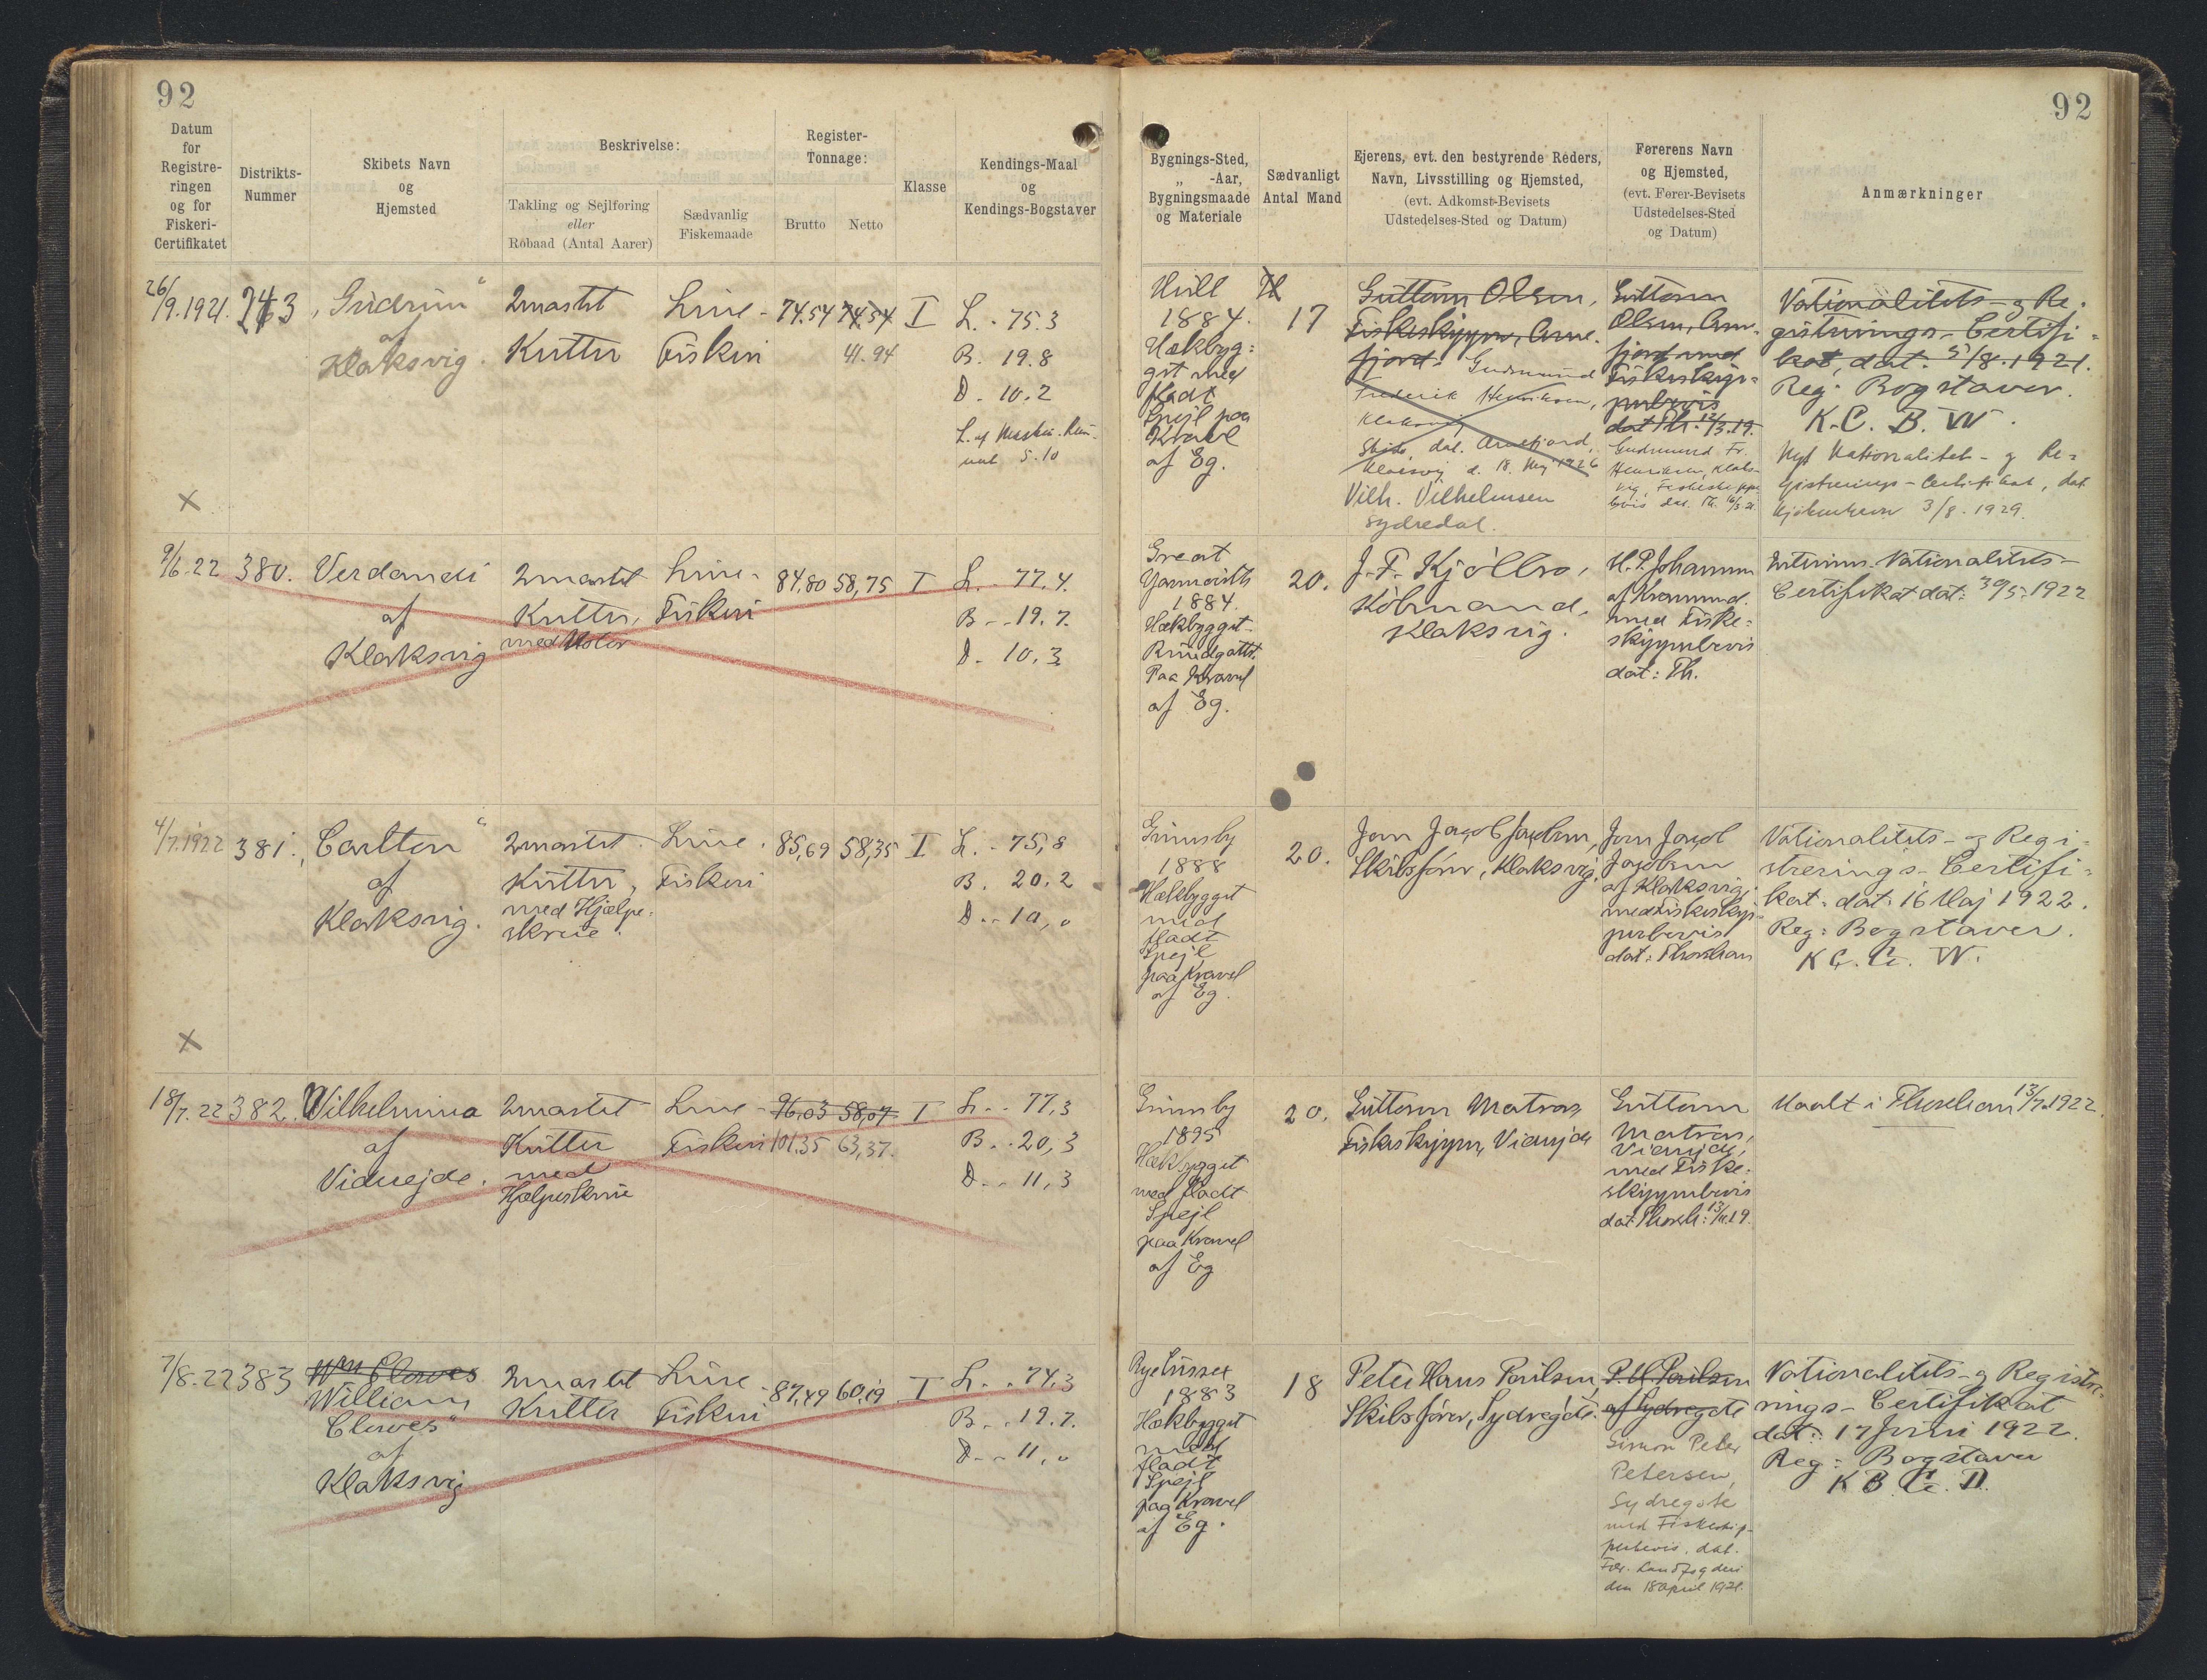 92
92
Datum
for
Registre-
ringen
og for
Fiskeri-
Certifikatet
Distrikts-
Nummer
Skibets Navn
og
Hjemsted
Beskrivelse:
Takling og Sejlføring
eller
Robaad (Antal Aarer)
Sædvanlig
Fiskemaade
Register-
Tonnage:
Brutto
Netto
Klasse
Kendings-Maal
og
Kendings-Bogstaver
Bygnings-Sted,
„ -Aar,
Bygningsmaade
og Materiale
Sædvanligt
Antal Mand
Ejerens, evt. den bestyrende Reders,
Navn, Livsstilling og Hjemsted,
(evt. Adkomst-Bevisets
Udstedelses-Sted og Datum)
Førerens Navn
og Hjemsted,
(evt. Fører-Bevisets
Udstedelses-Sted
og Datum)
Anmærkninger
26/9.1921.
243
„Gudrun"
af
Klaksvig.
2mastet
Kutter
Line-
Fiskeri
74.54
74.54
41.94
I
L. - 75.3
B. 19.8
D. 10.2
L. af Maskin-Rum-
met 5.10
Hull
1884.
Hækbyg:
get med
fladt
Spejl paa
Kravel
af Eg.
17
Guttorm Olsen,
Fiskeskipper, Arne-
fjord.
Gudmund
Frederik Henriksen,
Klaksvig
Skøde, dat. Arnefjord,
Klaksvig d. 18. Maj 1926
Vilh. Vilhelmsen
Sydredal.
Guttorm
Olsen, Arne-
fjord med
Fiskeskip-
perbevis
dat Th. 12/3.19.
Gudmund Fr.
Henriksen, Klaks-
vig, Fiskeskipper-
bevis dat. Th. 16/3.21.
Nationalitets- og Re-
gistrerings-Certifi-
kat, dat. 5/8.1921.
Reg: Bogstaver.
K. C. B. W.
Nyt Nationalitets- og Re-
gistrerings-Certifikat, dat.
Kjøbenhavn 3/8. 1929.
X
9/6-22
380.
Verdandi
af
Klaksvig
2mastet
Kutter,
med Motor
Line-
Fiskeri
84,80
58,75
I
L. - 77.4.
B - - 19.7.
D. - 10.3
Great
Yarmouth
1884.
Hækbygget
Rundgattet.
Paa Kravel
af Eg.
20.
J. F. Kjølbro,
Købmand,
Klaksvig.
H. P. Johannesen
af
med Fiske-
skipperbevis
dat: Th.
Interims. Nationalitets-
Certifikat dat: 30/5.1922
4/7.1922
381.
„Carlton"
af
Klaksvig.
2mastet
Kutter,
med Hjælpe-
skrue.
Line-
Fiskeri
85,69
58,35
I
L. - 75,8
B. 20.2
D. - 10,0
Grimsby
1888
Hækbygget
med
fladt
Spejl
paa Kravel
af Eg.
20.
Jørn Jacob Jacobsen,
Skibsfører, Klaksvig.
Jørn Jacob
Jacobsen
af Klaksvig,
med Fiskeskip-
perbevis
dat: Thorshavn
Nationalitets- og Regi-
strerings-Certifi-
kat: dat: 16 Maj 1922.
Reg: Bogstaver.
X
18/7.22
382.
Wilhelmina
af
Viderejde.
2mastet
Kutter
med
Hjælpeskrue
Line-
Fiskeri
96,03
58,07
101.35
63,37.
I
L. - - 77,3
B. - . 20,3
D. - - 11,3
Grimsby
1895
Hækbygget
med fladt
Spejl
paa Kravel
af Eg
20.
Guttorm Matras,
Fiskeskipper, Viderejde
Guttorm
Matras,
Viderejde,
med Fiske-
skipperbevis
dat: Thorsh:
Maalt i Thorshavn 13/7.1922.
7/8.22
383
Wm Clowes
William
Clowes"
af
Klaksvig
2mastet
Kutter
Line-
Fiskeri
87,49
60,19
I
L. . - 74.3
B. . . 19.7.
D. - - 11,0
Rye Sussex
1883
Hækbygget
med
fladt
Spejl
paa Kravel
af Eg.
18
Peter Hans Poulsen,
Skibsfører, Sydregøte.
P. H. Poulsen
af Sydregøte
Simon Peter
Petersen,
Sydregøte
med Fiskeskip-
perbevis, dat.
Fær. Landfogderi
den 18 April 1921.
Nationalitets- og Registre-
rings-Certifikat
dat: 17 Juni 1922.
Reg: Bogstaver